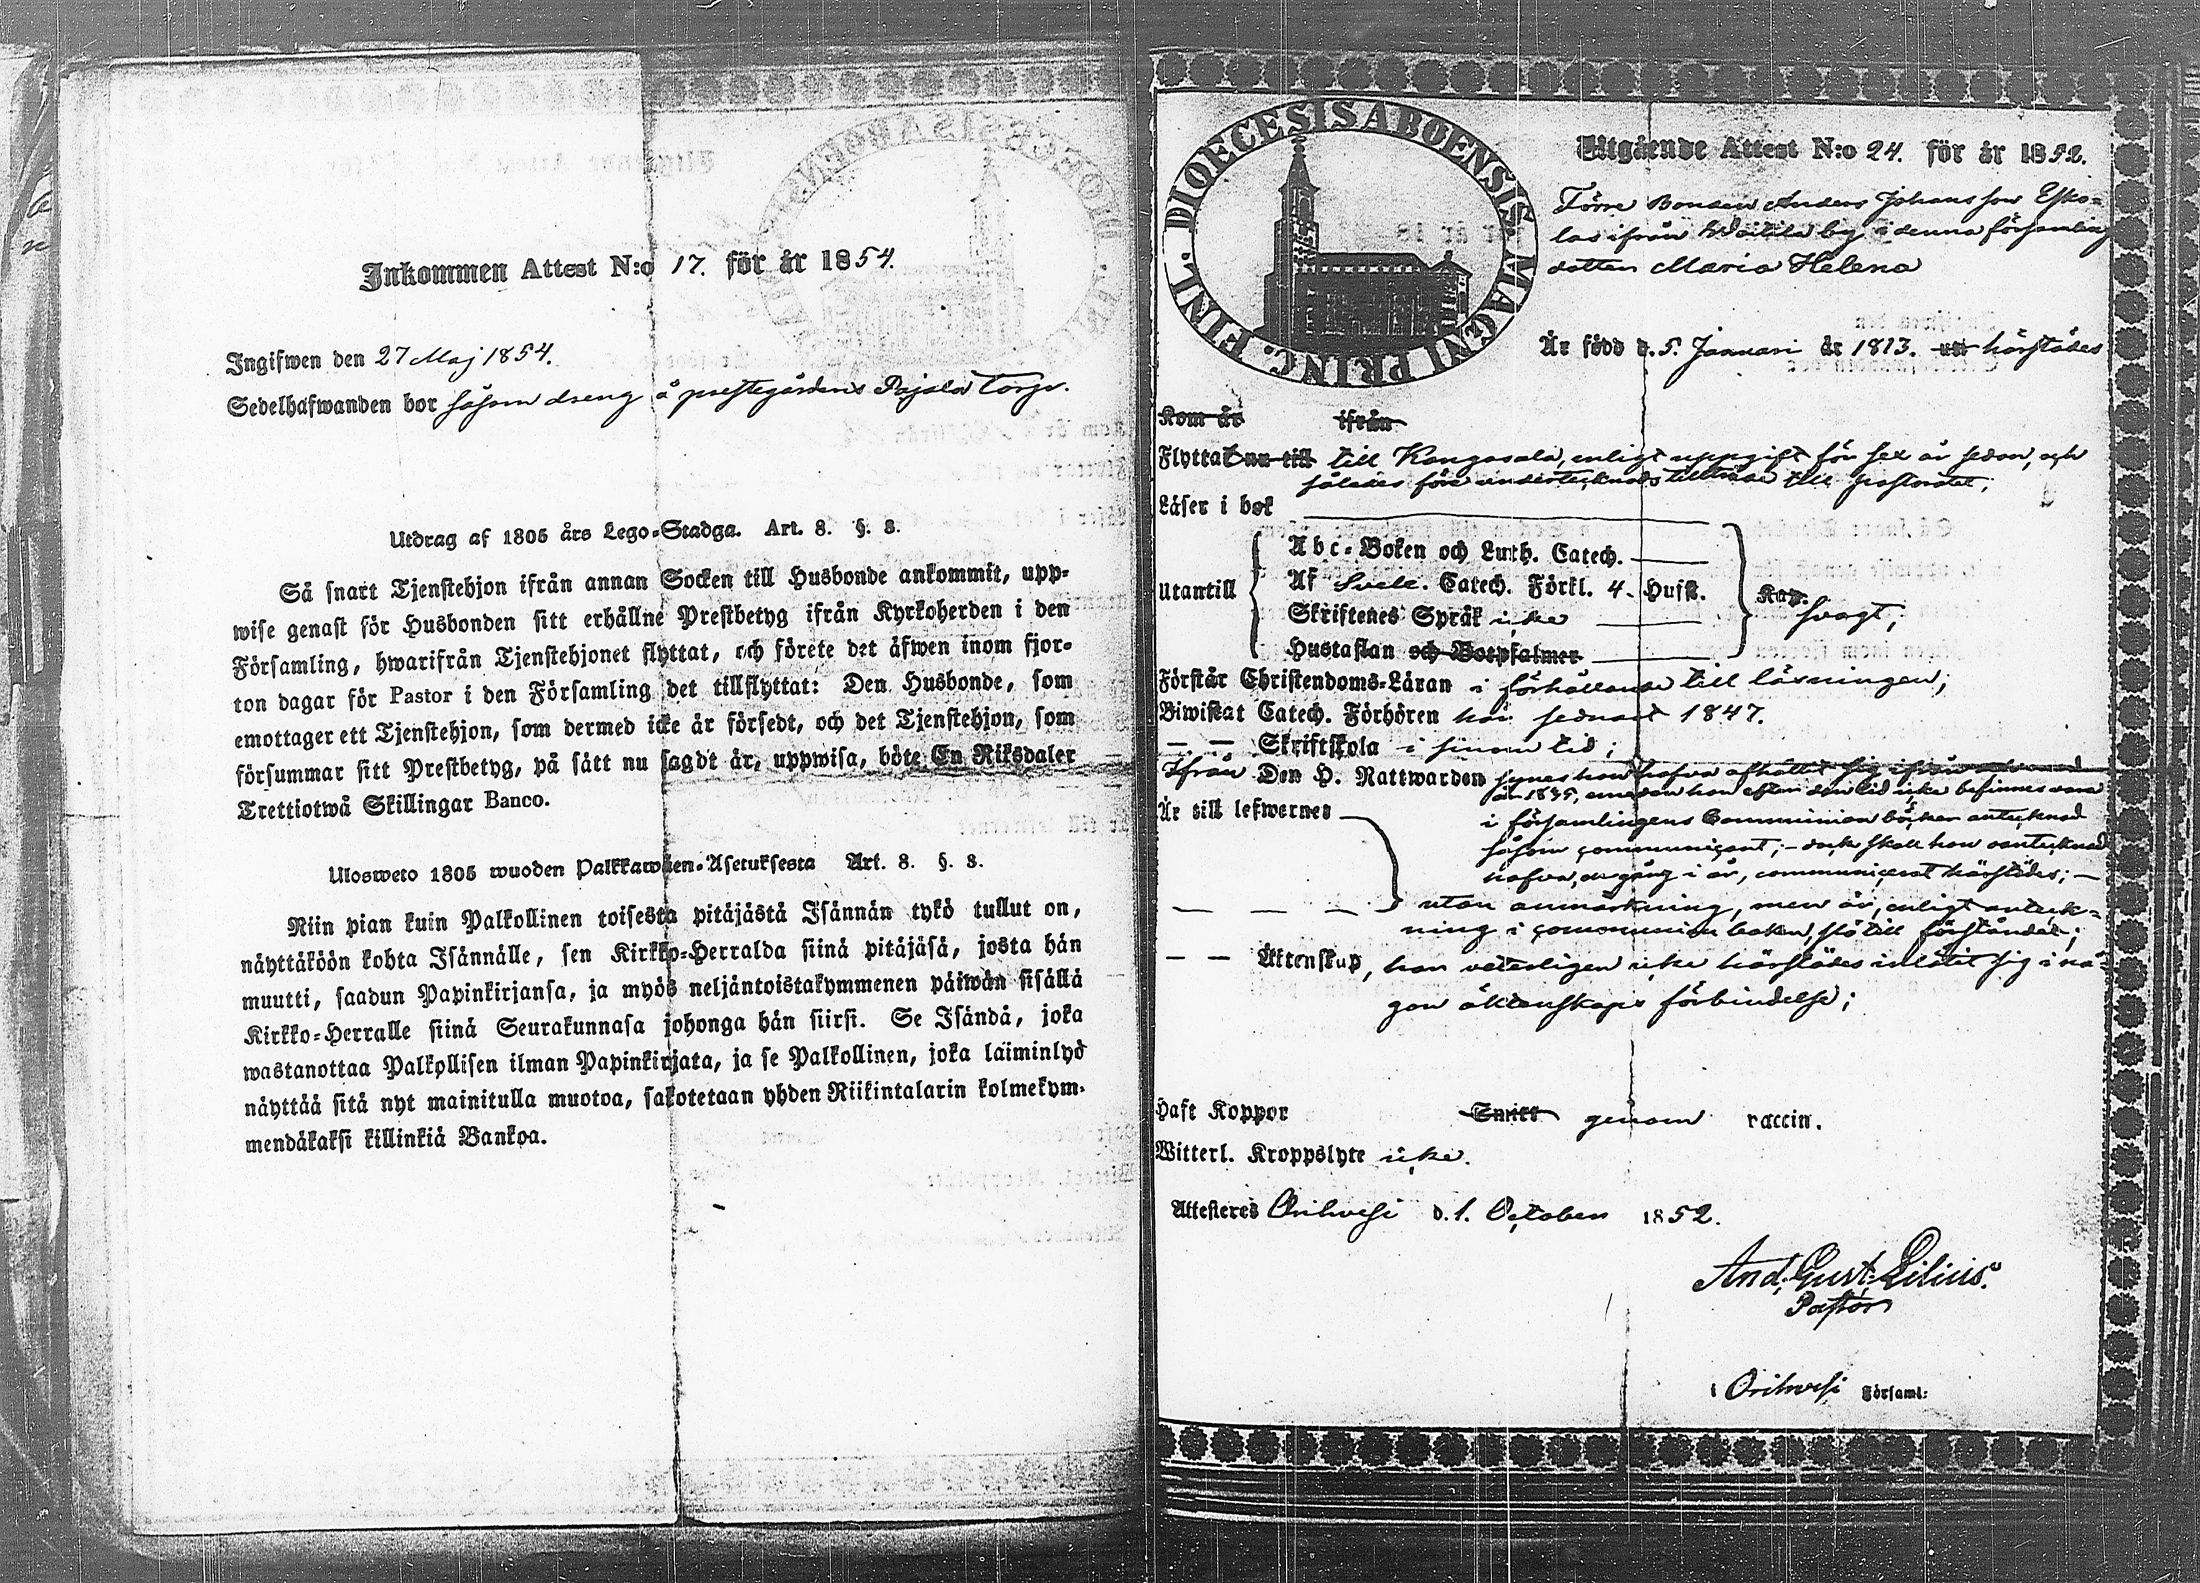 Inkommen Attest N:o 17. för år 1854.
Ingifwen den 27 Maj 1854.
Sedelhafwanden bor såsom dreng å prestegårdens Pajala torp.
Utdrag af 1805 års Lego-Stadga. Art. 8. §. 8.
Så snart Tjenstehjon ifrån annan Socken till Husbonde ankommit, upp-
wise genast för Husbonden sitt erhållne Prestbetyg ifrån Kyrkoherden i den
Församling, hwarifrån Tjenstehjonet flyttat, och förete det äfwen inom fjor-
ton dagar för Pastor i den Församling det tillflyttat: Den Husbonde, som
emottager ett Tjenstehjon, som dermed icke är försedt, och det Tjenstehjon, som
försummar sitt Prestbetyg, på sätt nu sagdt är, uppwisa, böte En Riksdaler
Trettiotwå Skillingar Banco.
Ulosweto 1805 wuoden Palkkawäen-Asetuksesta Art. 8. §. 8.
Niin pian kuin Palkollinen toisesta pitäjästä Isännän tykö tullut on,
näyttäköön kohta Isännälle, sen Kirkko-Herralda siinä pitäjäsä, josta hän
muutti, saadun Papinkirjansa, ja myös neljäntoistakymmenen päiwän sisällä
Kirkko-Herralle siinä Seurakunnasa johonga hän siirsi. Se Isändä, joka
wastanottaa Palkollisen ilman Papinkirjata, ja se Palkollinen, joka läiminlyö
näyttää sitä nyt mainitulla muotoa, sakotetaan yhden Riikintalarin kolmekym-
mendäkaksi killinkiä Bankoa.
DIOECESIS ABOENSIS. MAGNI PRINC. FINL.
Utgående Attest N:o 24. för år 1852.
Förre Bonden Anders Johansson Esko-
las ifrån by i denna församling
dotter Maria Helena
Är född d. 5. Januari år 1813. uti härstädes
Kom år ifrån
Flyttat nu till till Kangasala, enligt uppgift för sex år sedan, och
således före undertecknads tillträde till pastoratet;
Läser i bok
Utantill
Abc-Boken och Luth. Catech.
Af Sveb. Catech. Förkl. 4. Hufst. Kap.
Skriftenes Språk icke svagt;
Hustaflan och Botpsalmer
Förstår Christendoms-Läran i förhållande till läsningen;
Biwistat Catech. Förhören har sednast 1847.
— — Skriftskola i sinom tid;
Ifrån Den H. Nattwarden synes hon hafva afhållit sig ifrån
år 1845, emedan hon efter den tid icke befinnes vara
i församlingens Communion böcker antecknad
såsom communicant; - dock skall hon
hafva, en gång i år, communicerat härstädes; -
Är till lefwernet
— — — — utan anmärkning, men är, enligt anteck-
ning i communion boken, slö till förståndet;
— — Äktenskap, hon veterligen icke härstädes inlåtit sig i nå-
gon äktenskaps förbindelse;
Haft Koppor Smitt genom vaccin.
Witterl. Kroppslyte icke.
Attesteres Orihvesi d. 1. October 1852.
And. Gust. Lilius.
Pastor
i Orihvesi Församl: